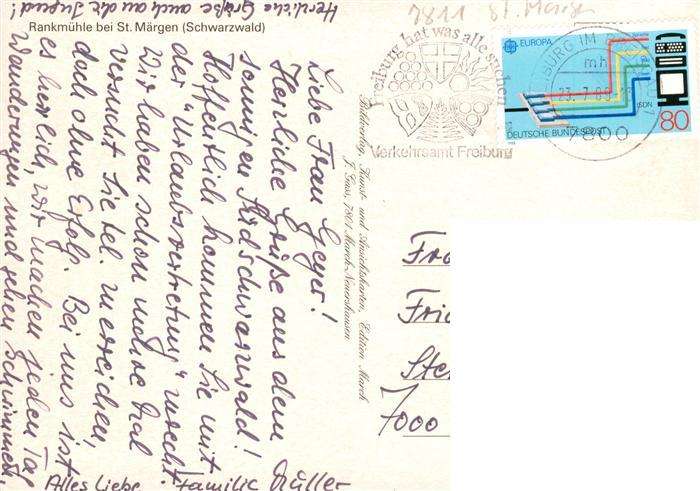 Herzliche Grüße auch an die Jugend!
Rankmühle bei St. Märgen (Schwarzwald)
Liebe Frau Geyer!
Herzliche Grüße aus dem
sonnigen Südschwarzwald!
Hoffentlich kommen Sie mit
der "Urlaubsvertretung" zurecht.
Wir haben schon mehrere Mal
versucht Sie tel. zu erreichen,
doch ohne Erfolg. Bei uns ist
es herrlich, wir machen jeden Tag
Wanderungen und gehen schwimmen.
Alles Liebe Familie Müller
Bildverlag, Kunst- und Ansichtskarten, Edition March
J. Gass, 7801 March-Neuershausen
7811 St. Märgen
Freiburg hat was alle suchen
Verkehrsamt Freiburg
FREIBURG IM BREISGAU 1
mh
23.-7.88
7800
EUROPA
ISDN
DEUTSCHE BUNDESPOST
80
Fra
Frie
Ste
7000